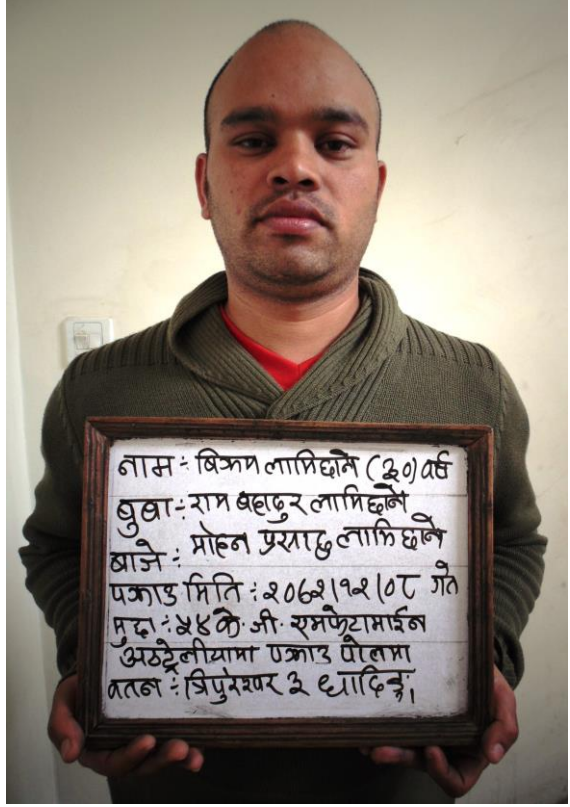 नाम : बिक्रम लामिछाने (३०) वर्ष
बुबा : राम बहादुर लामिछाने
बाजे : मोहन प्रसाद लामिछाने
पक्राउ मिति : २०७२।१२।०८ गते
मुद्दा : ५४ के. जी. एमफेटामाईन
अष्ट्रेलीयामा पक्राउ पोलमा
वतन : त्रिपुरेश्वर ३ धादिङ्ग।